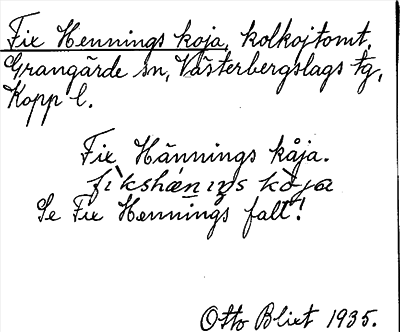 Fix Hennings koja, kolkojtomt.
Grangärde sn, Västerbergslags tg,
Kopp l.
Fix Hännings kåja.
Se Fix Hennings fall!
Otto Blixt 1935.